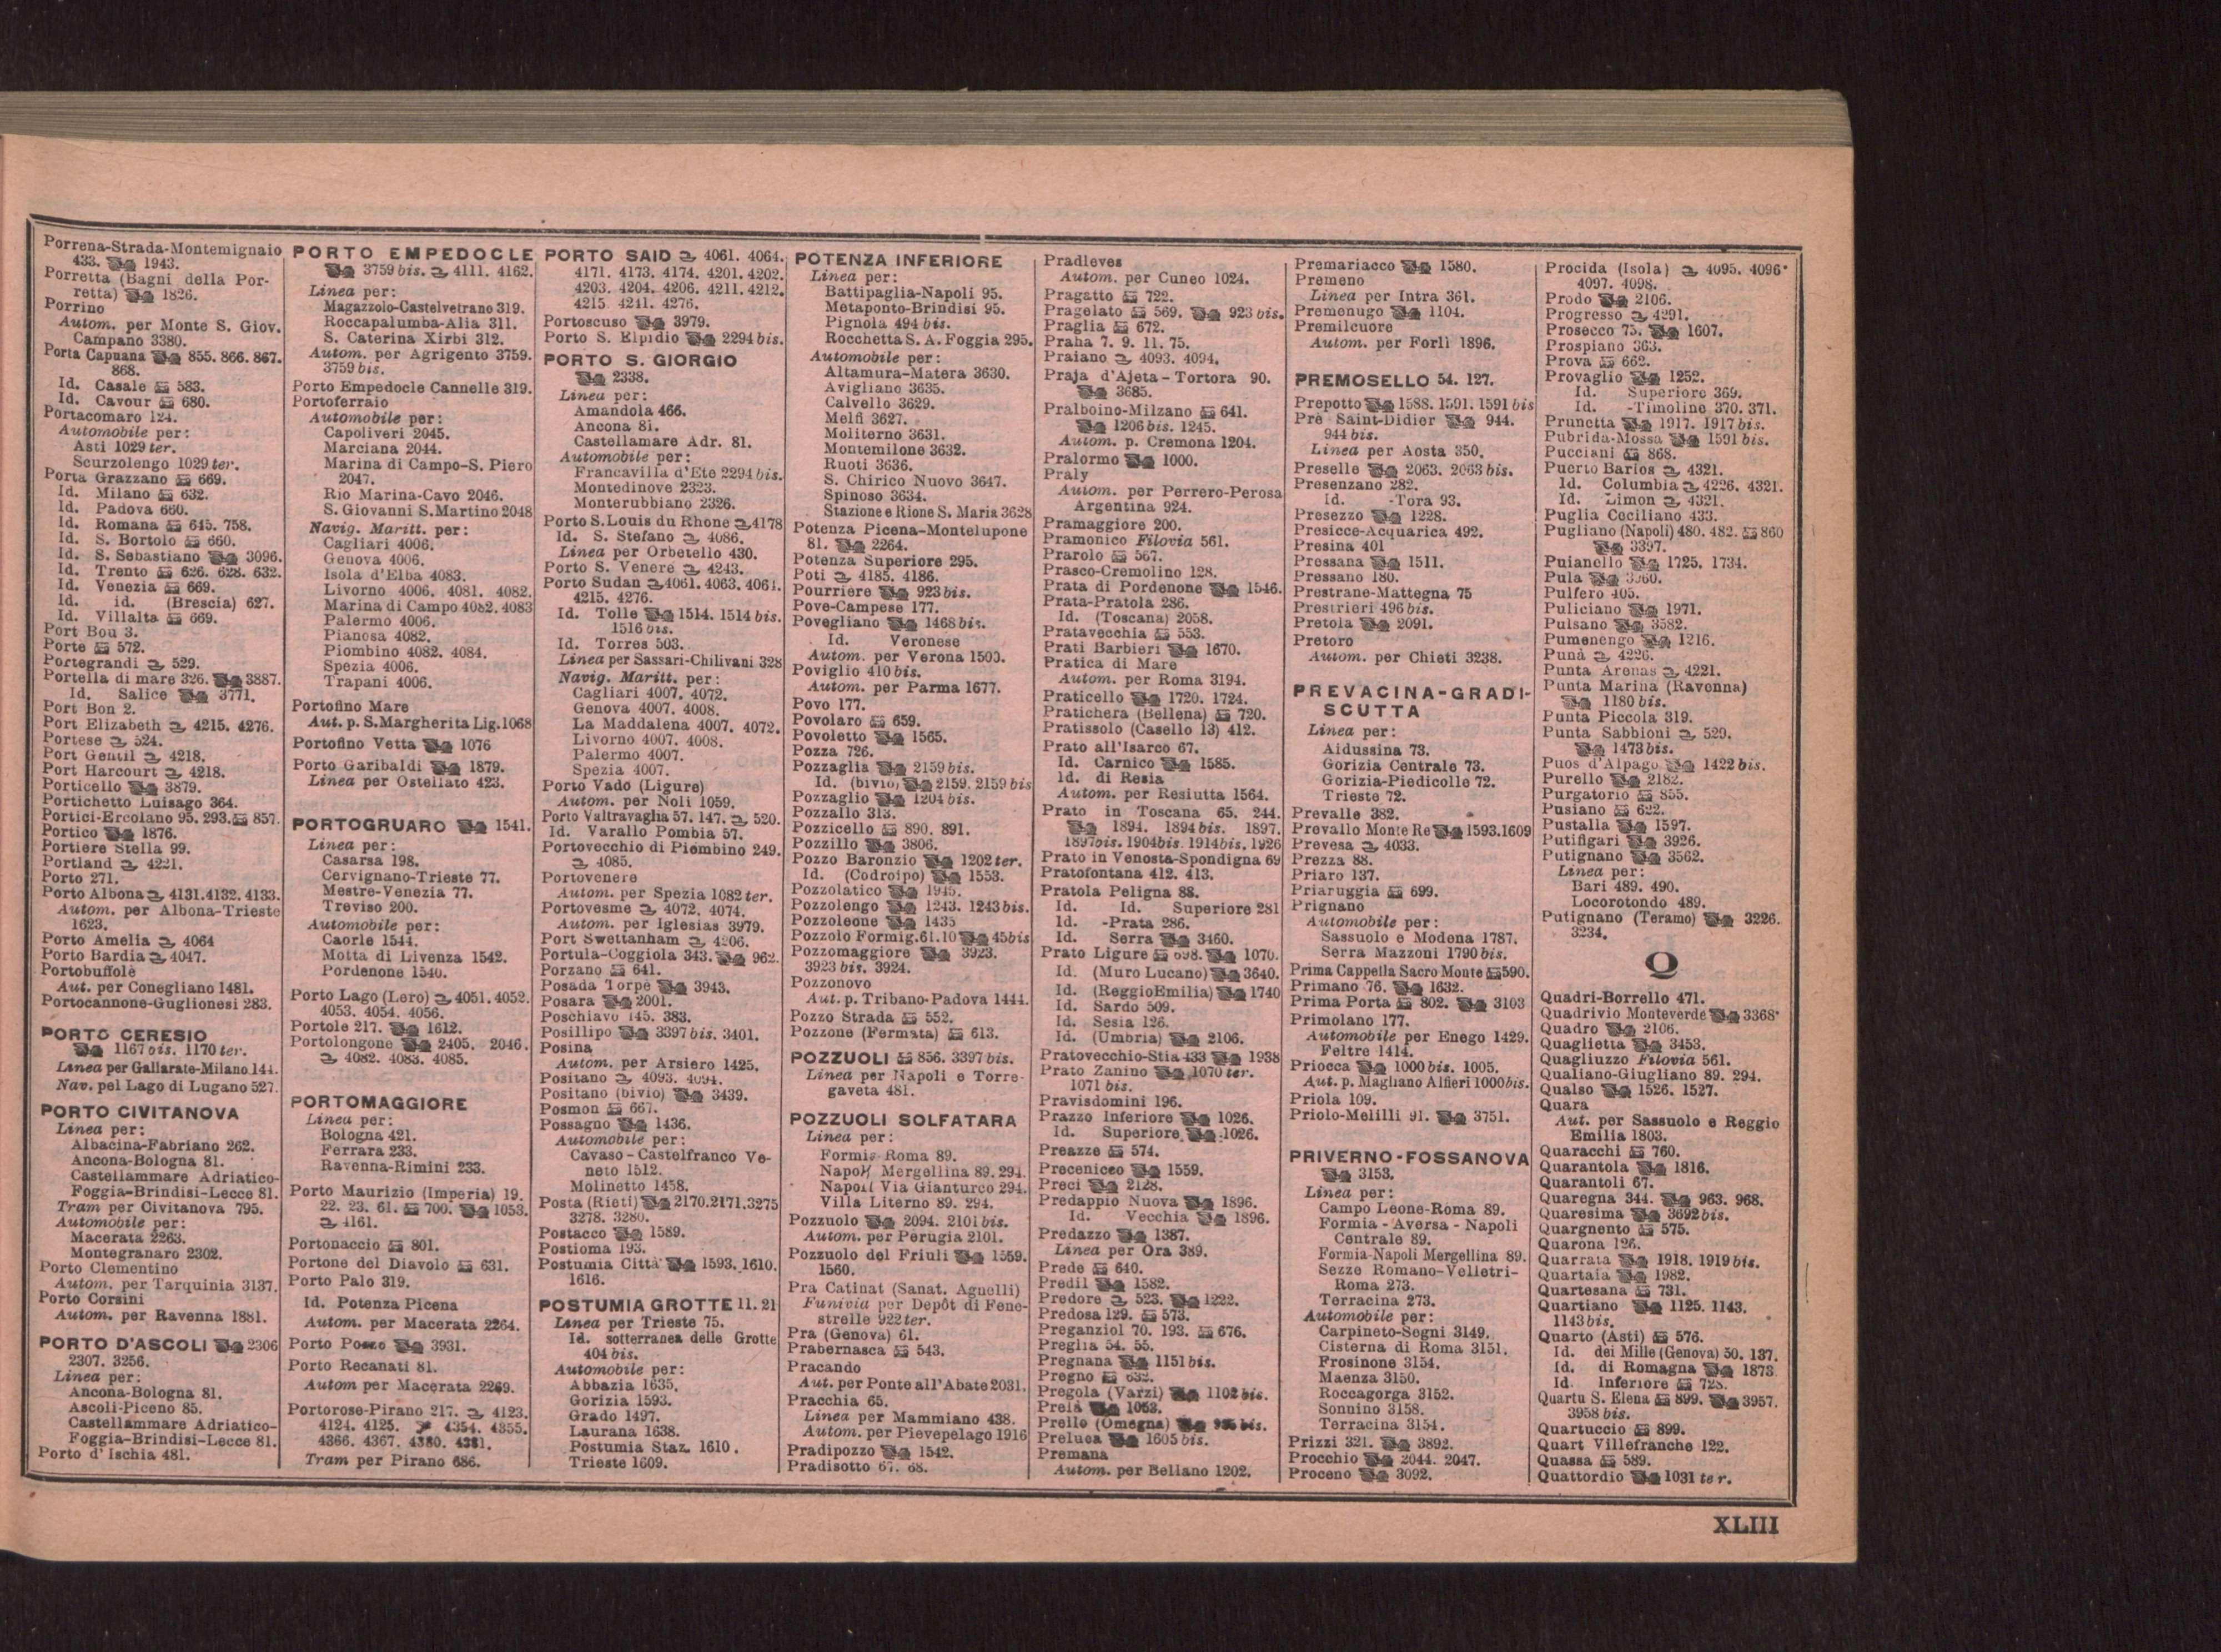 Porrena-Strada-Montemignaio
433. 1943.
Porretta (Bagni della Por-
retta) 1826.
Porrino
Autom. per Monte S. Giov.
Campano 3380.
Porta Capuana 855. 866. 867.
868.
Id. Casale 583.
Id. Cavour 680.
Portacomaro 124.
Automobile per:
Asti 1029 ter.
Scurzolengo 1029 ter.
Porta Grazzano 669.
Id. Milano 632.
Id. Padova 660.
Id. Romana 645. 758.
Id. S. Bortolo 660.
Id. S. Sebastiano 3096.
Id. Trento 626. 628. 632.
Id. Venezia 669.
Id. id. (Brescia) 627.
Id. Villalta 669.
Port Bou 3.
Porte 572.
Portegrandi 529.
Portella di mare 326. 3887.
Id. Salice 3771.
Port Bon 2.
Port Elizabeth 4215. 4276.
Portese 524.
Port Gentil 4218.
Port Harcourt 4218.
Porticello 3879.
Portichetto Luisago 364.
Portici-Ercolano 95. 293. 857.
Portico 1876.
Portiere Stella 99.
Portland 4221.
Porto 271.
Porto Albona 4131. 4132. 4133.
Autom. per Albona-Trieste
1623.
Porto Amelia 4064
Porto Bardia 4047.
Portobuffolè
Aut. per Conegliano 1481.
Portocannone-Guglionesi 283.
PORTO CERESIO
1167 bis. 1170 ter.
Linea per Gallarate-Milano 144.
Nav. pel Lago di Lugano 527.
PORTO CIVITANOVA
Linea per:
Albacina-Fabriano 262.
Ancona-Bologna 81.
Castellammare Adriatico-
Foggia-Brindisi-Lecce 81.
Tram per Civitanova 795.
Automobile per:
Macerata 2263.
Montegranaro 2302.
Porto Clementino
Autom. per Tarquinia 3137.
Porto Corsini
Autom. per Ravenna 1881.
PORTO D'ASCOLI 2306
2307. 3256.
Linea per:
Ancona-Bologna 81.
Ascoli-Piceno 85.
Castellammare Adriatico-
Foggia-Brindisi-Lecce 81.
Porto d'Ischia 481.
PORTO EMPEDOCLE
3759 bis. 4111. 4162.
Linea per:
Magazzolo-Castelvetrano 319.
Roccapalumba-Alia 311.
S. Caterina Xirbi 312.
Autom. per Agrigento 3759.
3759 bis.
Porto Empedocle Cannelle 319.
Portoferraio
Automobile per:
Capoliveri 2045.
Marciana 2044.
Marina di Campo-S. Piero
2047.
Rio Marina-Cavo 2046.
S. Giovanni S. Martino 2048
Navig. Maritt. per:
Cagliari 4006.
Genova 4006.
Isola d'Elba 4083.
Livorno 4006. 4081. 4082.
Marina di Campo 4082. 4083
Palermo 4006.
Pianosa 4082.
Piombino 4082. 4084.
Spezia 4006.
Trapani 4006.
Portofino Mare
Aut. p. S. Margherita Lig. 1068
Portofino Vetta 1076
Porto Garibaldi 1879.
Linea per Ostellato 423.
PORTOGRUARO 1541.
Linea per:
Casarsa 198.
Cervignano-Trieste 77.
Mestre-Venezia 77.
Treviso 200.
Automobile per:
Caorle 1544.
Motta di Livenza 1542.
Pordenone 1540.
Porto Lago (Lero) 4051. 4052.
4053. 4054. 4056.
Portole 217. 1612.
Portolongone 2405. 2046.
4082. 4083. 4085.
PORTOMAGGIORE
Linea per:
Bologna 421.
Ferrara 233.
Ravenna-Rimini 233.
Porto Maurizio (Imperia) 19.
22. 23. 61. 700. 1053.
4161.
Portonaccio 801.
Portone del Diavolo 631.
Porto Palo 319.
Id. Potenza Picena
Autom. per Macerata 2264.
Porto 3931.
Porto Recanati 81.
Autom per Macerata 2269.
Portorose-Pirano 217. 4123.
4124. 4125. 4354. 4355.
4366. 4367. 4380. 4381.
Tram per Pirano 686.
PORTO SAID 4061. 4064.
4171. 4173. 4174. 4201. 4202.
4203. 4204. 4206. 4211. 4212.
4215. 4241. 4276.
Portoscuso 3979.
Porto S. Elpidio 2294 bis.
PORTO S. GIORGIO
2338.
Linea per:
Amandola 466.
Ancona 81.
Castellamare Adr. 81.
Automobile per:
Francavilla d'Ete 2294 bis.
Montedinove 2323.
Monterubbiano 2326.
Porto S. Louis du Rhone 4178
Id. S. Stefano 4086.
Linea per Orbetello 430.
Porto S. Venere 4243.
Porto Sudan 4061. 4063. 4064.
4215. 4276.
Id. Tolle 1514. 1514 bis.
1516 bis.
Id. Torres 503.
Linea per Sassari-Chilivani 328
Navig. Maritt. per:
Cagliari 4007. 4072.
Genova 4007. 4008.
La Maddalena 4007. 4072.
Livorno 4007. 4008.
Palermo 4007.
Spezia 4007.
Porto Vado (Ligure)
Autom. per Noli 1059.
Porto Valtravaglia 57. 147. 520.
Id. Varallo Pombia 57.
Portovecchio di Piombino 249.
4085.
Portovenere
Autom. per Spezia 1082 ter.
Portovesme 4072. 4074.
Autom. per Iglesias 3979.
Port Swettanham 4206.
Portula-Coggiola 343. 962.
Porzano 641.
Posada Torpè 3943.
Posara 2001.
Poschiavo 145. 383.
Posillipo 3397 bis. 3401.
Posina
Autom. per Arsiero 1425.
Positano 4093. 4094.
Positano (bivio) 3439.
Posmon 667.
Possagno 1436.
Automobile per:
Cavaso-Castelfranco Ve-
neto 1512.
Molinetto 1458.
Posta (Rieti) 2170. 2171. 3275
3278. 3280.
Postacco 1589.
Postioma 193.
Postumia Città 1593. 1610.
1616.
POSTUMIA GROTTE 11. 21
Linea per Trieste 75.
Id. sotterranea delle Grotte
404 bis.
Automobile per:
Abbazia 1635.
Gorizia 1593.
Grado 1497.
Laurana 1638.
Postumia Staz. 1610.
Trieste 1609.
POTENZA INFERIORE
Linea per:
Battipaglia-Napoli 95.
Metaponto-Brindisi 95.
Pignola 494 bis.
Rocchetta S. A. Foggia 295.
Automobile per:
Altamura-Matera 3630.
Avigliano 3635.
Calvello 3629.
Melfi 3627.
Moliterno 3631.
Montemilone 3632.
Ruoti 3636.
S. Chirico Nuovo 3647.
Spinoso 3634.
Stazione e Rione S. Maria 3628
Potenza Picena-Montelupone
81. 2264.
Potenza Superiore 295.
Poti 4185. 4186.
Pourriere 923 bis.
Pove-Campese 177.
Povegliano 1468 bis.
Id. Veronese
Autom. per Verona 1503.
Poviglio 410 bis.
Autom. per Parma 1677.
Povo 177.
Povolaro 659.
Povoletto 1565.
Pozza 726.
Pozzaglia 2159 bis.
Id. (bivio) 2159. 2159 bis
Pozzaglio 1204 bis.
Pozzallo 313.
Pozzicello 890. 891.
Pozzillo 3806.
Pozzo Baronzio 1202 ter.
Id. (Codroipo) 1553.
Pozzolatico 1945.
Pozzolengo 1243. 1243 bis.
Pozzoleone 1435
Pozzolo Formig. 61. 10 45 bis
Pozzomaggiore 3923.
3923 bis. 3924.
Pozzonovo
Aut. p. Tribano-Padova 1444.
Pozzo Strada 552.
Pozzone (Fermata) 613.
POZZUOLI 856. 3397 bis.
Linea per Napoli e Torre-
gaveta 481.
POZZUOLI SOLFATARA
Linea per:
Formis-Roma 89.
Napoli Mergellina 89. 294.
Napoli Via Gianturco 294.
Villa Literno 89. 294.
Pozzuolo 2094. 2101 bis.
Autom. per Perugia 2101.
Pozzuolo del Friuli 1559.
1560.
Pra Catinat (Sanat. Agnelli)
Funivia per Depôt di Fene-
strelle 922 ter.
Pra (Genova) 61.
Prabernasca 543.
Pracando
Aut. per Ponte all'Abate 2031.
Pracchia 65.
Linea per Mammiano 438.
Autom. per Pievepelago 1916
Pradipozzo 1542.
Pradisotto 67. 68.
Pradleves
Autom. per Cuneo 1024.
Pragatto 722.
Pragelato 569. 923 bis.
Praglia 672.
Praha 7. 9. 11. 75.
Praiano 4093. 4094.
Praja d'Ajeta-Tortora 90.
3685.
Pralboino-Milzano 641.
1206 bis. 1245.
Autom. p. Cremona 1204.
Pralormo 1000.
Praly
Autom. per Perrero-Perosa
Argentina 924.
Pramaggiore 200.
Pramonico Filovia 561.
Prarolo 567.
Prasco-Cremolino 128.
Prata di Pordenone 1546.
Prata-Pratola 286.
Id. (Toscana) 2058.
Pratavecchia 553.
Prati Barbieri 1670.
Pratica di Mare
Autom. per Roma 3194.
Praticello 1720. 1724.
Pratichera (Bellena) 720.
Pratissolo (Casello 13) 412.
Prato all'Isarco 67.
Id. Carnico 1585.
Id. di Resia
Autom. per Resiutta 1564.
Prato in Toscana 65. 244.
1894. 1894 bis. 1897.
1897 bis. 1904 bis. 1914 bis. 1926
Prato in Venosta-Spondigna 69
Pratofontana 412. 413.
Pratola Peligna 88.
Id. Id. Superiore 281
Id. -Prata 286.
Id. Serra 3460.
Prato Ligure 698. 1070.
Id. (Muro Lucano) 3640.
Id. (Reggio Emilia) 1740
Id. Sardo 509.
Id. Sesia 126.
Id. (Umbria) 2106.
Pratovecchio-Stia 433 1938
Prato Zanino 1070 ter.
1071 bis.
Pravisdomini 196.
Prazzo Inferiore 1026.
Id. Superiore 1026.
Preazze 574.
Precenicco 1559.
Preci 2128.
Predappio Nuova 1896.
Id. Vecchia 1896.
Predazzo 1387.
Linea per Ora 389.
Prede 640.
Predil 1582.
Predore 523. 1222.
Predosa 129. 573.
Preganziol 70. 193. 676.
Preglia 54. 55.
Pregnana 1151 bis.
Pregno 632.
Pregola (Varzi) 1102 bis.
Prelà 1053.
Prello (Omegna) bis.
Preluca 1605 bis.
Premana
Autom. per Bellano 1202.
Premariacco 1580.
Premeno
Linea per Intra 361.
Premenugo 1104.
Premilcuore
Autom. per Forlì 1896.
PREMOSELLO 54. 127.
Prepotto 1588. 1591. 1591 bis
Prè Saint-Didier 944.
944 bis.
Linea per Aosta 350.
Preselle 2063. 2063 bis.
Presenzano 282.
Id. -Tora 93.
Presezzo 1228.
Presicce-Acquarica 492.
Presina 401
Pressana 1511.
Pressano 180.
Prestrane-Mattegna 75
Prestrieri 496 bis.
Pretola 2091.
Pretoro
Autom. per Chieti 3238.
PREVACINA-GRADI-
SCUTTA
Linea per:
Aidussina 73.
Gorizia Centrale 73.
Gorizia-Piedicolle 72.
Trieste 72.
Prevalle 382.
Prevallo Monte Re 1593. 1609
Prevesa 4033.
Prezza 88.
Priaro 137.
Priaruggia 699.
Prignano
Automobile per:
Sassuolo e Modena 1787.
Serra Mazzoni 1790 bis.
Prima Cappella Sacro Monte 590.
Primano 76. 1632.
Prima Porta 802. 3103
Primolano 177.
Automobile per Enego 1429.
Feltre 1414.
Priocca 1000 bis. 1005.
Aut. p. Magliano Alfieri 1000 bis.
Priola 109.
Priolo-Melilli 91. 3751.
PRIVERNO-FOSSANOVA
3153.
Linea per:
Campo Leone-Roma 89.
Formia-Aversa-Napoli
Centrale 89.
Formia-Napoli Mergellina 89.
Sezze Romano-Velletri-
Roma 273.
Terracina 273.
Automobile per:
Carpineto-Segni 3149.
Cisterna di Roma 3151.
Frosinone 3154.
Maenza 3150.
Roccagorga 3152.
Sonnino 3158.
Terracina 3154.
Prizzi 321. 3892.
Procchio 2044. 2047.
Proceno 3092.
Procida (Isola) 4095. 4096.
4097. 4098.
Prodo 2106.
Progresso 4291.
Prosecco 75. 1607.
Prospiano 363.
Prova 662.
Provaglio 1252.
Id. Superiore 369.
Id. -Timoline 370. 371.
Prunetta 1917. 1917 bis.
Pubrida-Mossa 1591 bis.
Pucciani 868.
Puerto Barios 4321.
Id. Columbia 4226. 4321.
Id. Limon 4321.
Puglia Ceciliano 433.
Pugliano (Napoli) 480. 482. 860
3397.
Puianello 1725. 1734.
Pula 3960.
Pulfero 405.
Puliciano 1971.
Pulsano 3582.
Pumenengo 1216.
Punà 4226.
Punta Arenas 4221.
Punta Marina (Ravenna)
1180 bis.
Punta Piccola 319.
Punta Sabbioni 529.
1473 bis.
Puos d'Alpago 1422 bis.
Purello 2182.
Purgatorio 855.
Pusiano 622.
Pustalla 1597.
Putifigari 3926.
Putignano 3562.
Linea per:
Bari 489. 490.
Locorotondo 489.
Putignano (Teramo) 3226.
3234.
Q
Quadri-Borrello 471.
Quadrivio Monteverde 3368.
Quadro 2106.
Quaglietta 3453.
Quagliuzzo Filovia 561.
Qualiano-Giugliano 89. 294.
Qualso 1526. 1527.
Quara
Aut. per Sassuolo e Reggio
Emilia 1803.
Quaracchi 760.
Quarantola 1816.
Quarantoli 67.
Quaregna 344. 963. 968.
Quaresima 3692 bis.
Quargnento 575.
Quarona 126.
Quarrata 1918. 1919 bis.
Quartaia 1982.
Quartesana 731.
Quartiano 1125. 1143.
1143 bis.
Quarto (Asti) 576.
Id. dei Mille (Genova) 50. 137.
Id. di Romagna 1873
Id. Inferiore 728.
Quartu S. Elena 899. 3957.
3958 bis.
Quartuccio 899.
Quart Villefranche 122.
Quassa 589.
Quattordio 1031 ter.
XLIII